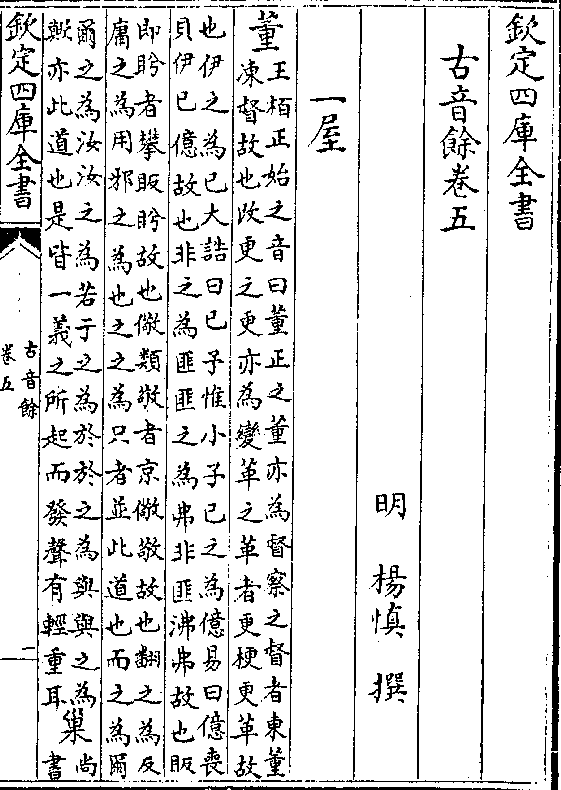 欽定四庫全書
古音餘卷五
明 楊慎 撰
一屋
董
王栢正始之音曰董正之董亦為督察之督者東董
凍督故也改更之更亦為變革之革者更梗更革故
也伊之為已大誥曰已予惟小子已之為億易曰億喪
貝伊已億故也非之為匪匪之為弗非匪沸弗故也眅
即盻者攀眅盻故也儆類敬者京儆敬故也翻之為反
庸之為用邪之為也之之為只者並此道也而之為爾
爾之為汝汝之為若于之為於於之為與與之為
歟亦此道也是皆一義之所起而發聲有輕重耳
巢
尚
書
欽定四庫全書
古音餘
卷五
一